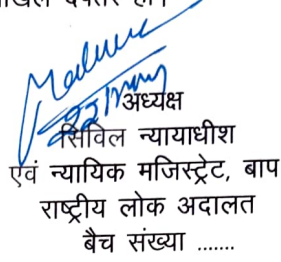 अध्यक्ष
सिविल न्यायाधीश
एवं न्यायिक मजिस्ट्रेट, बाप
राष्ट्रीय लोक अदालत
बैच संख्या .......